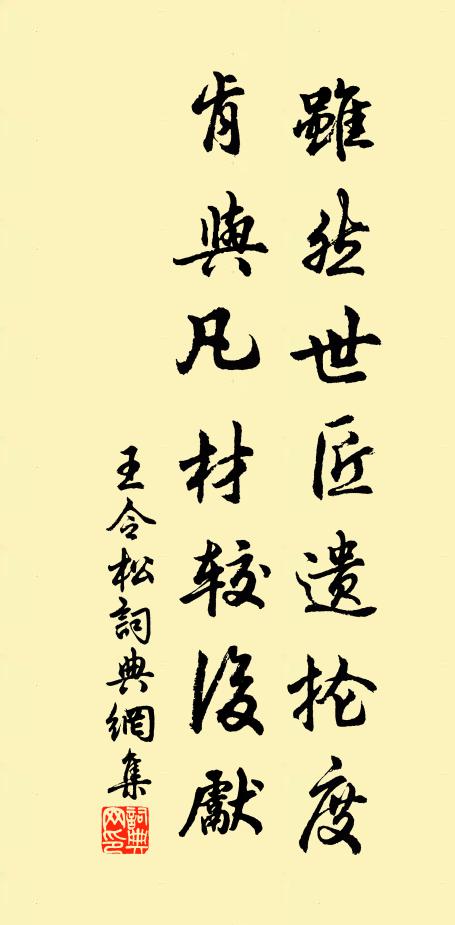 雖然世匠遺掄度
肯與凡材較後獻
王令松詞典網集
詞典网印